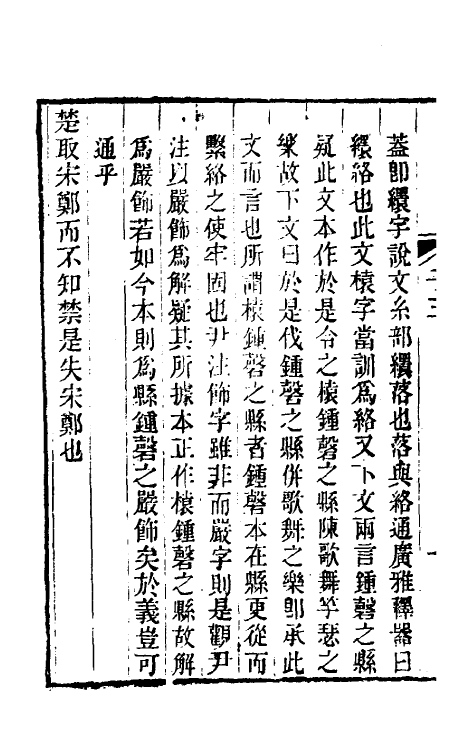 蓋卽纕字說文糸部纕落也落與絡通廣雅釋器曰
纕絡也此文榬字當訓爲絡又下文兩言鍾磬之縣
疑此文本作於是令之榬鍾磬之縣陳歌舞竽瑟之
樂故下文曰於是伐鍾磬之縣併歌舞之樂卽承此
文而言也所謂榬鍾磬之縣者鍾磬本在縣更從而
繫絡之使牢固也尹注飾字雖非而嚴字則是觀尹
注以嚴飾爲解疑其所據本正作榬鍾磬之縣故解
爲嚴飾若如今本則爲縣鍾磬之嚴飾矣於義豈可
通乎
楚取宋鄭而不知禁是失宋鄭也